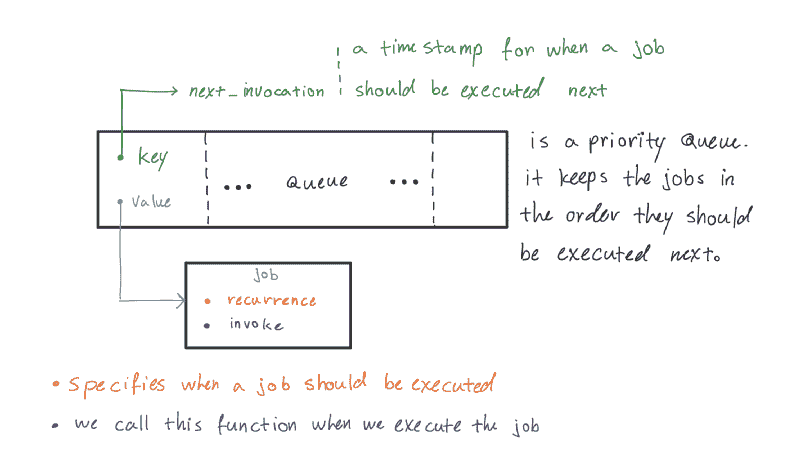 a timestamp for when a job
next_invocation should be executed next
key
value
... Queue ...
is a priority Queue.
it keeps the jobs in
the order they should
be executed next.
job
• recurrence
• invoke
• specifies when a job should be executed
• we call this function when we execute the job